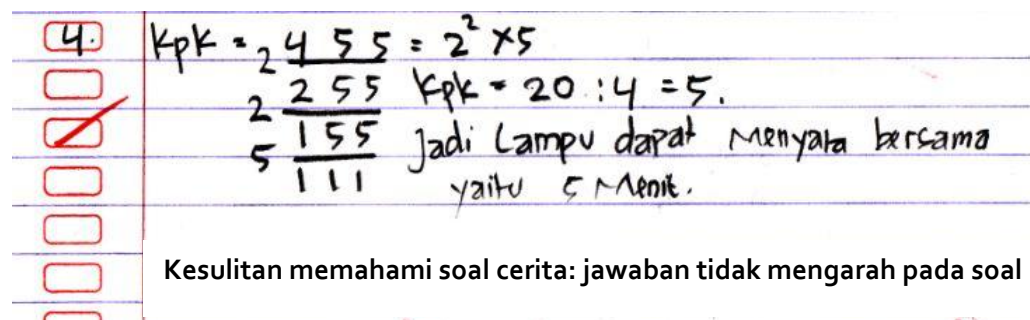 4. KpK = 2 4 5 5 = 2² x 5
2 2 5 5 KpK = 20 : 4 = 5.
5 1 5 5 Jadi Lampu dapat Menyala bersama
1 1 1 yaitu 5 Menit.
Kesulitan memahami soal cerita: jawaban tidak mengarah pada soal